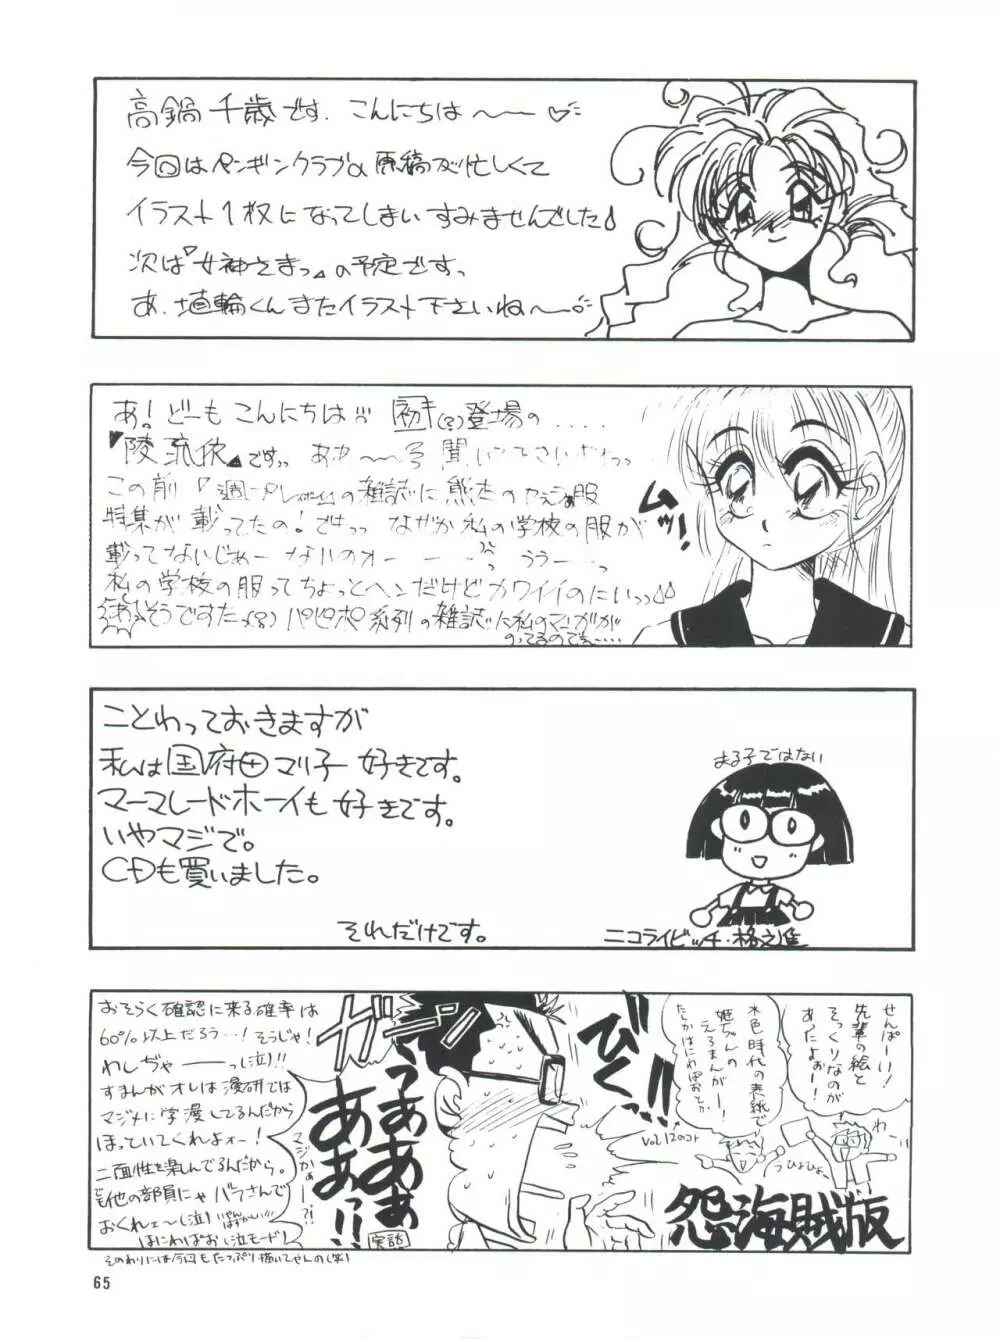 高鍋千歳です. こんにちは〜〜♡
今回はペンギンクラブの原稿が忙しくて
イラスト1枚になってしまいすみませんでした♪
次は『女神さまっ』の予定ですっ
あ.埴輪くんまたイラスト下さいね〜〜
あ!どーもこんにちは!!! 初(?)登場の.....
です。
この前『週一プレイボーイ』の雑誌に
服
特集が載ってたの!でもっっ なぜか私の学校の服が
載ってないじゃーないのォーーー っ ううーーっ
私の学校の服ってちょっとヘンだけどカワイイのにいっっ♪♪
パピポ系列の雑誌に私のマンガが
のってるのでえ……
ムッ!
ことわっておきますが
私は国府田マリ子好きです。
マーマレードボーイも好きです。
いやマジで。
CDも買いました。
それだけです。
まる子ではない
ニコライビッチ・格之進
せんぱーい!
先輩の絵と
そっくりなのが
あったよぉー!
わーい
水色時代の表紙で
姫ちゃんの
えろまんがー!
たしかはにわぱおとか
Vol 12のコト
うひょひょ
びくっ
ガガーン
うああああああ!!
マジかぁー!?
実話
おそらく確認に来る確率は
60%以上だろう…!そうじゃ!
わしぢゃーーっ(泣)!!
すまんがオレは漫研では
マジメに学漫してるんだから
ほっていてくれよォー!
二面性を楽しんでるんだから。
でも他の部員にゃバラさんで
おくれェ〜(泣)
はにわぱお(泣モード)
そのわりには今回もたっぷり描いてやんの(笑)
怨海賊版
65